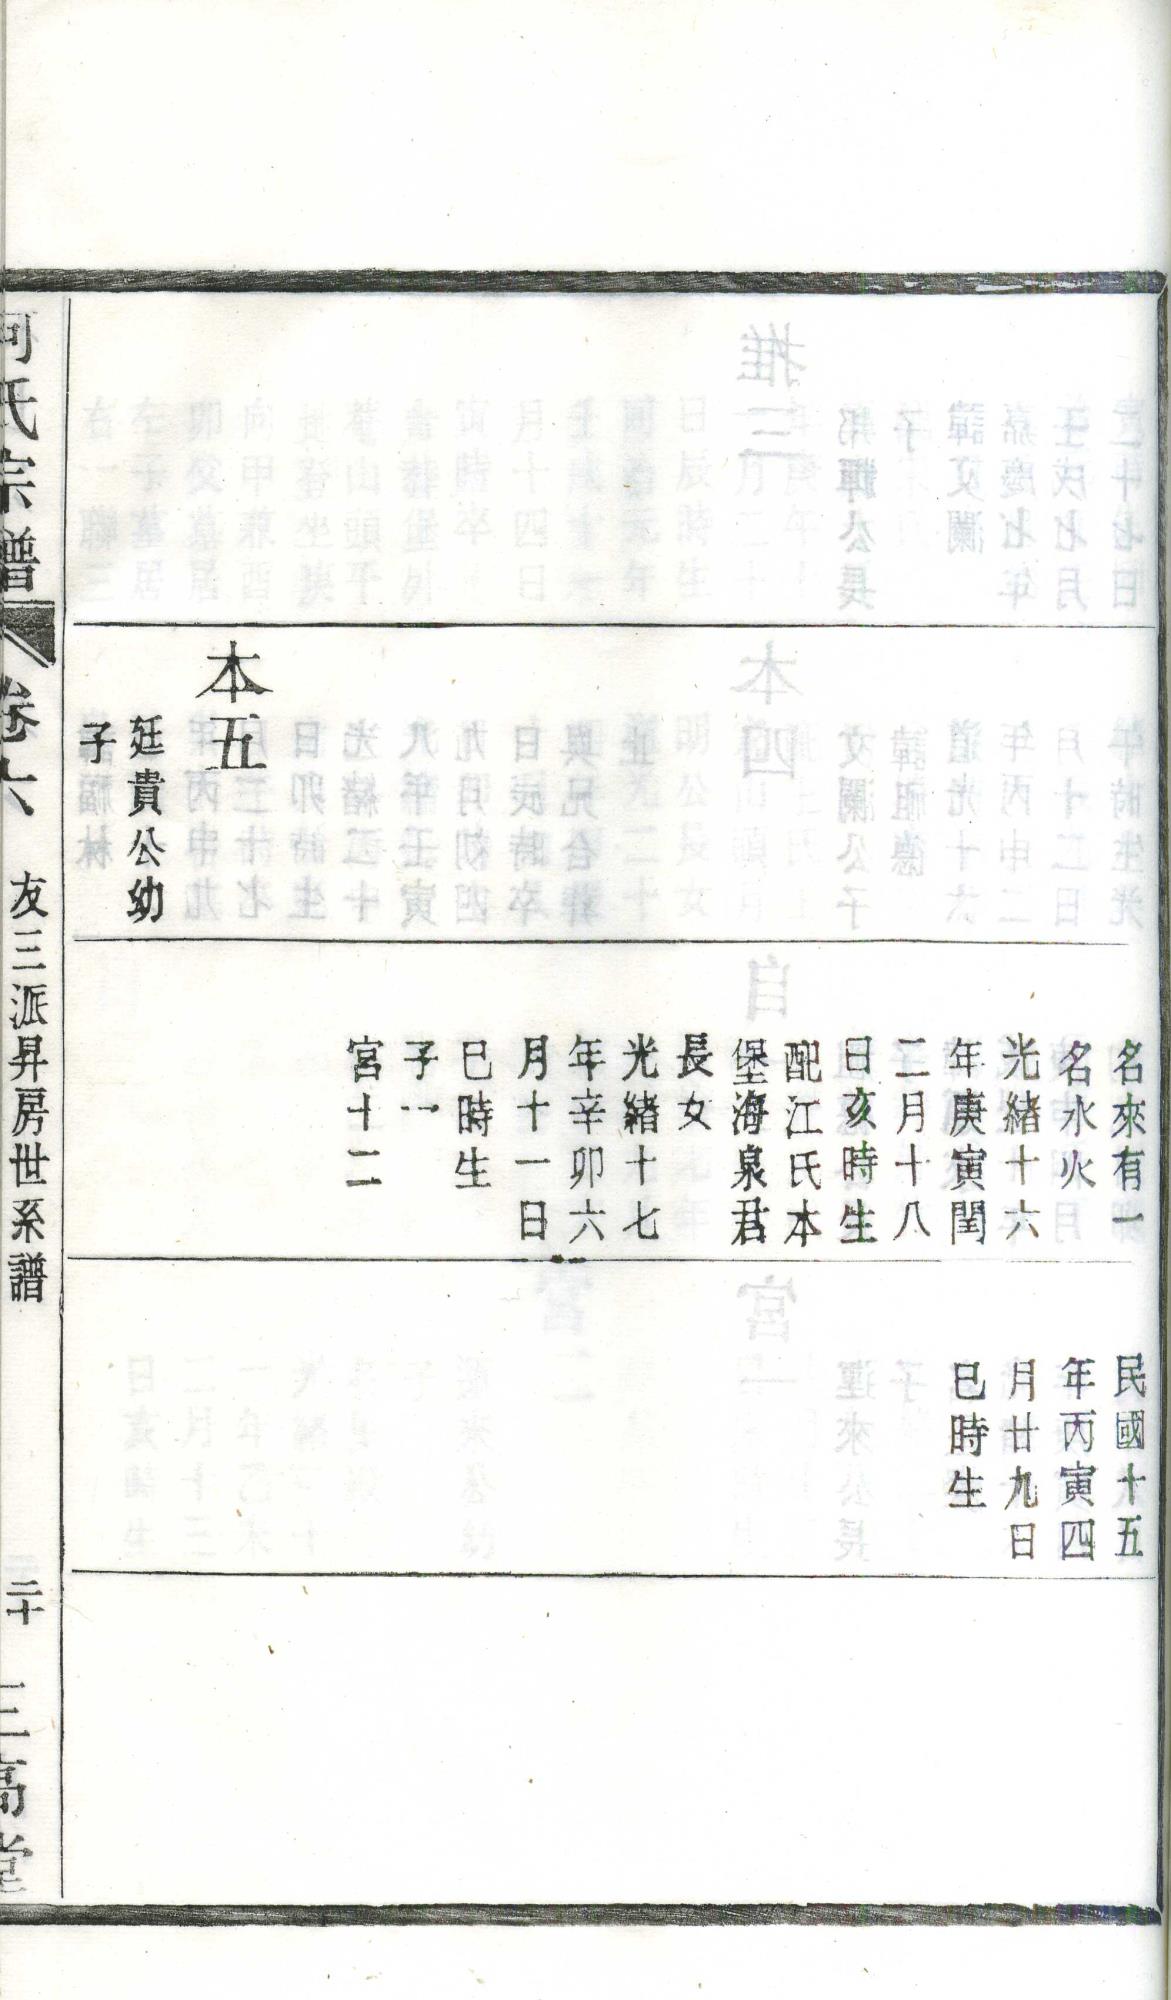 本五
廷貴公幼
子
名來有一
名水火
光緒十六
年庚寅閏
二月十八
日亥時生
配江氏本
堡海泉君
長女
光緒十七
年辛卯六
月十一日
巳時生
子一
宮十二
民國十五
年丙寅四
月廿九日
巳時生
何氏宗譜
卷六
友三派昇房世系譜
二十
三高堂